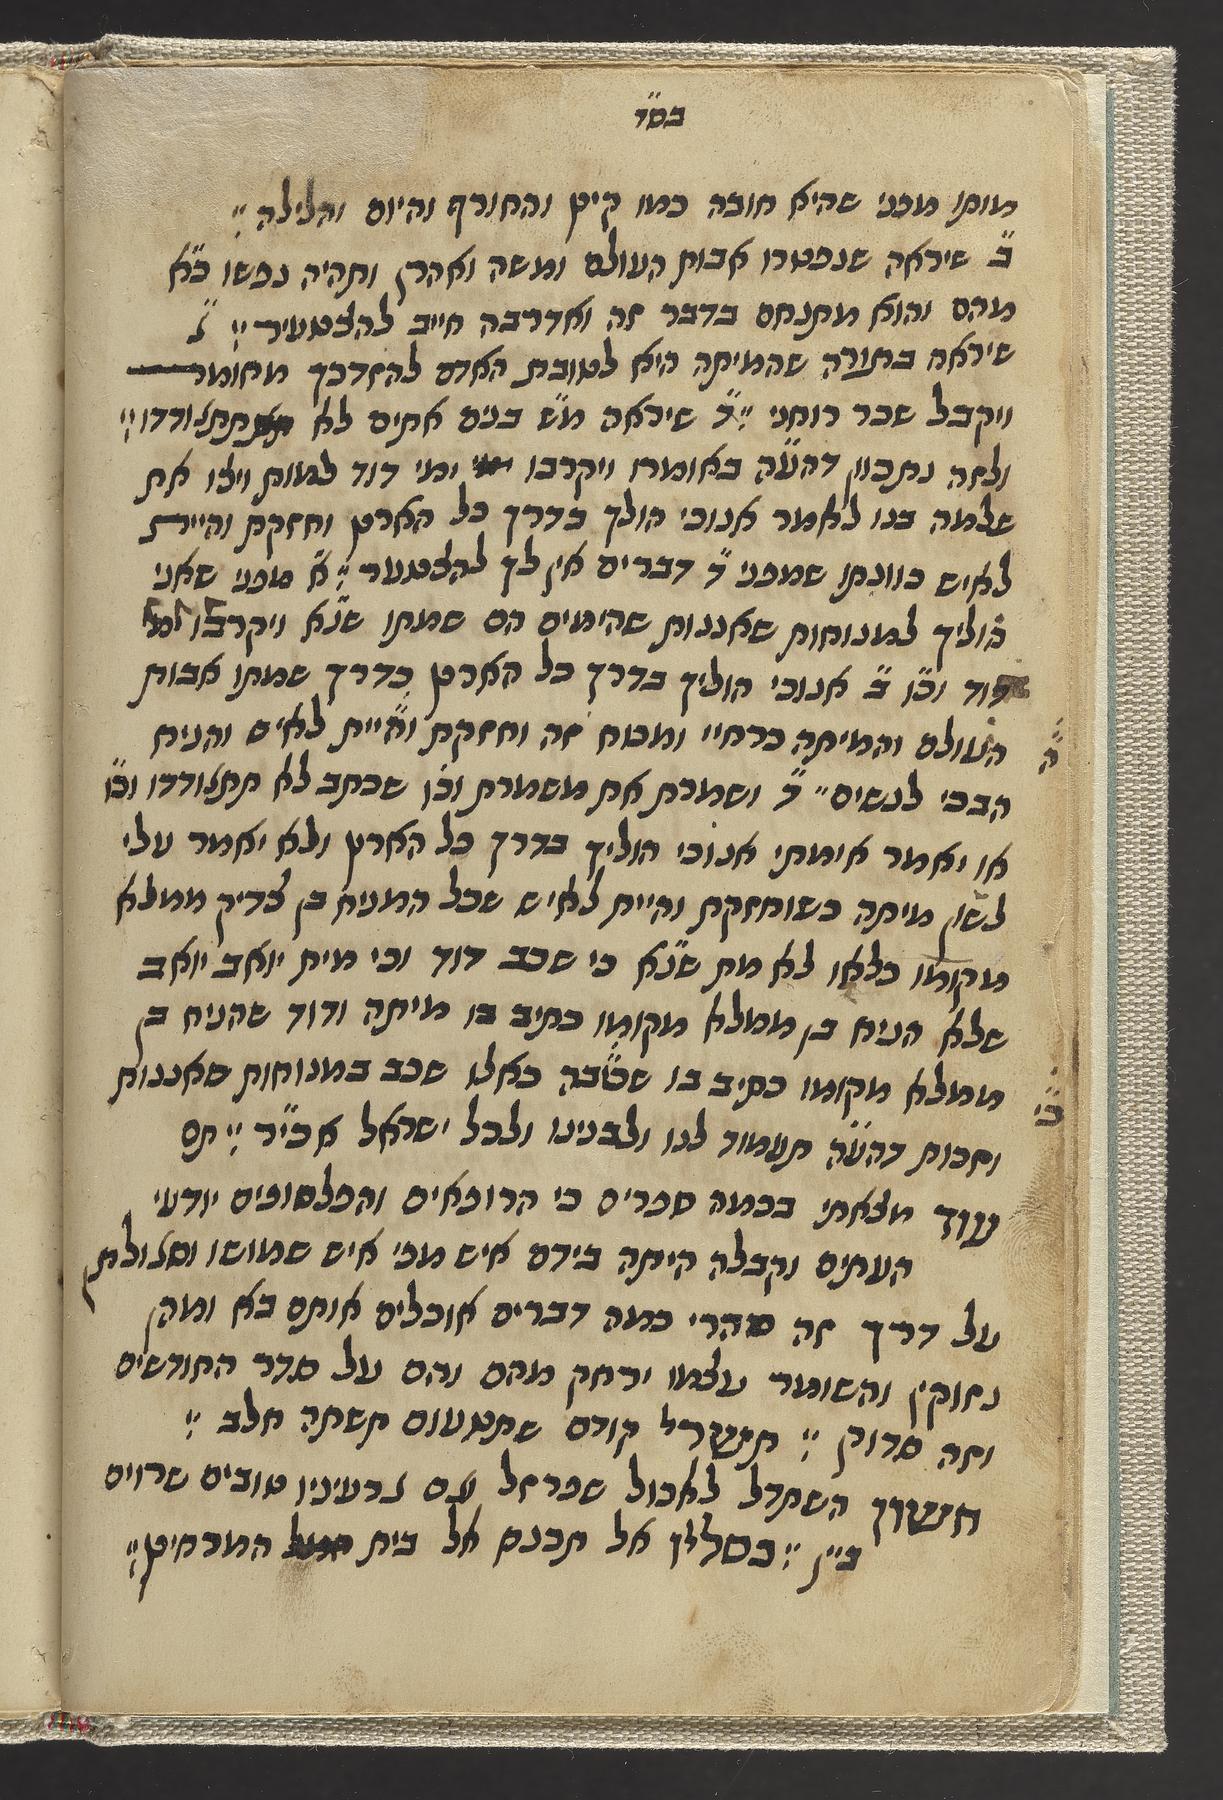 בס״ד
מותו מפני שהיא חובה כמו קיץ והחורף והיום והלילה
ב״ שיראה שנפטרו אבות העולם ומשה ואהרן ותהיה נפשו כ״א
מהם והוא מתנחם בדבר זה ואדרבה חייב להצטער ג״
שיראה בתורה שהמיתה היא לטובת האדם להזדכך מחומר
ויקבל שכר רוחני ד״ שיראה מ״ש בנים אתים לא תתגודדו
ולזה נתכוון דהע״ה באומרו ויקרבו ימי דוד למות ויצו את
שלמה בנו לאמר אנוכי הולך בדרך כל הארץ וחזקת והיית
לאיש כוונתו שמפני ד״ דברים אין לך להצטער א״ מפני שאני
הוליך למנוחות שאננות שהימים הם שמתו שנ״א ויקרבו ימי
דוד וכו׳ ב״ אנוכי הוליך בדרך כל הארץ כדרך שמתו אבות
העולם והמיתה כרחיי ומכוח זה וחזקת והיית לאיש והניח
ה״
הבכי לנשים ד״ ושמרת את משמרת וכו׳ שכתב לא תתגודדו וכו׳
או יאמר אימתי אנוכי הוליך בדרך כל הארץ ולא יאמר עלי
לשון מיתה כשוחזקת והיית לאיש שכל המניח בן צדיק ממלא
מקומו כלאו לא מת שנ״א כי שכב דוד וכי מית יואב יואב
שלא הניח בן ממלא מקומו כתיב בו מיתה ודוד שהניח בן
ממלא מקומו כתיב בו שכיבה כאלו שכב במנוחות שאננות
כ״י
וזכות דהע״ה תעמוד לנו ולבנינו ולכל ישראל אכי״ר תם
עוד מצאתי בכמה ספרים כי הרופאים והפלסופים יודעי
העתים וקבלה היתה בידם איש מפי איש שמושו וסגולתן
על דרך זה סהרי כמה דברים אוכלים אותם בא ומהן
נזוקין והשומר עצמו ירחק מהם והם על סדר החודשים
וזה סדורן תשרי קודם שתטעום תשתה חלב
חשון השתדל לאכול שפרזל עם גרעיניו טובים שרויים
ביין כסליו אל תכנס אל בית המרחיץ